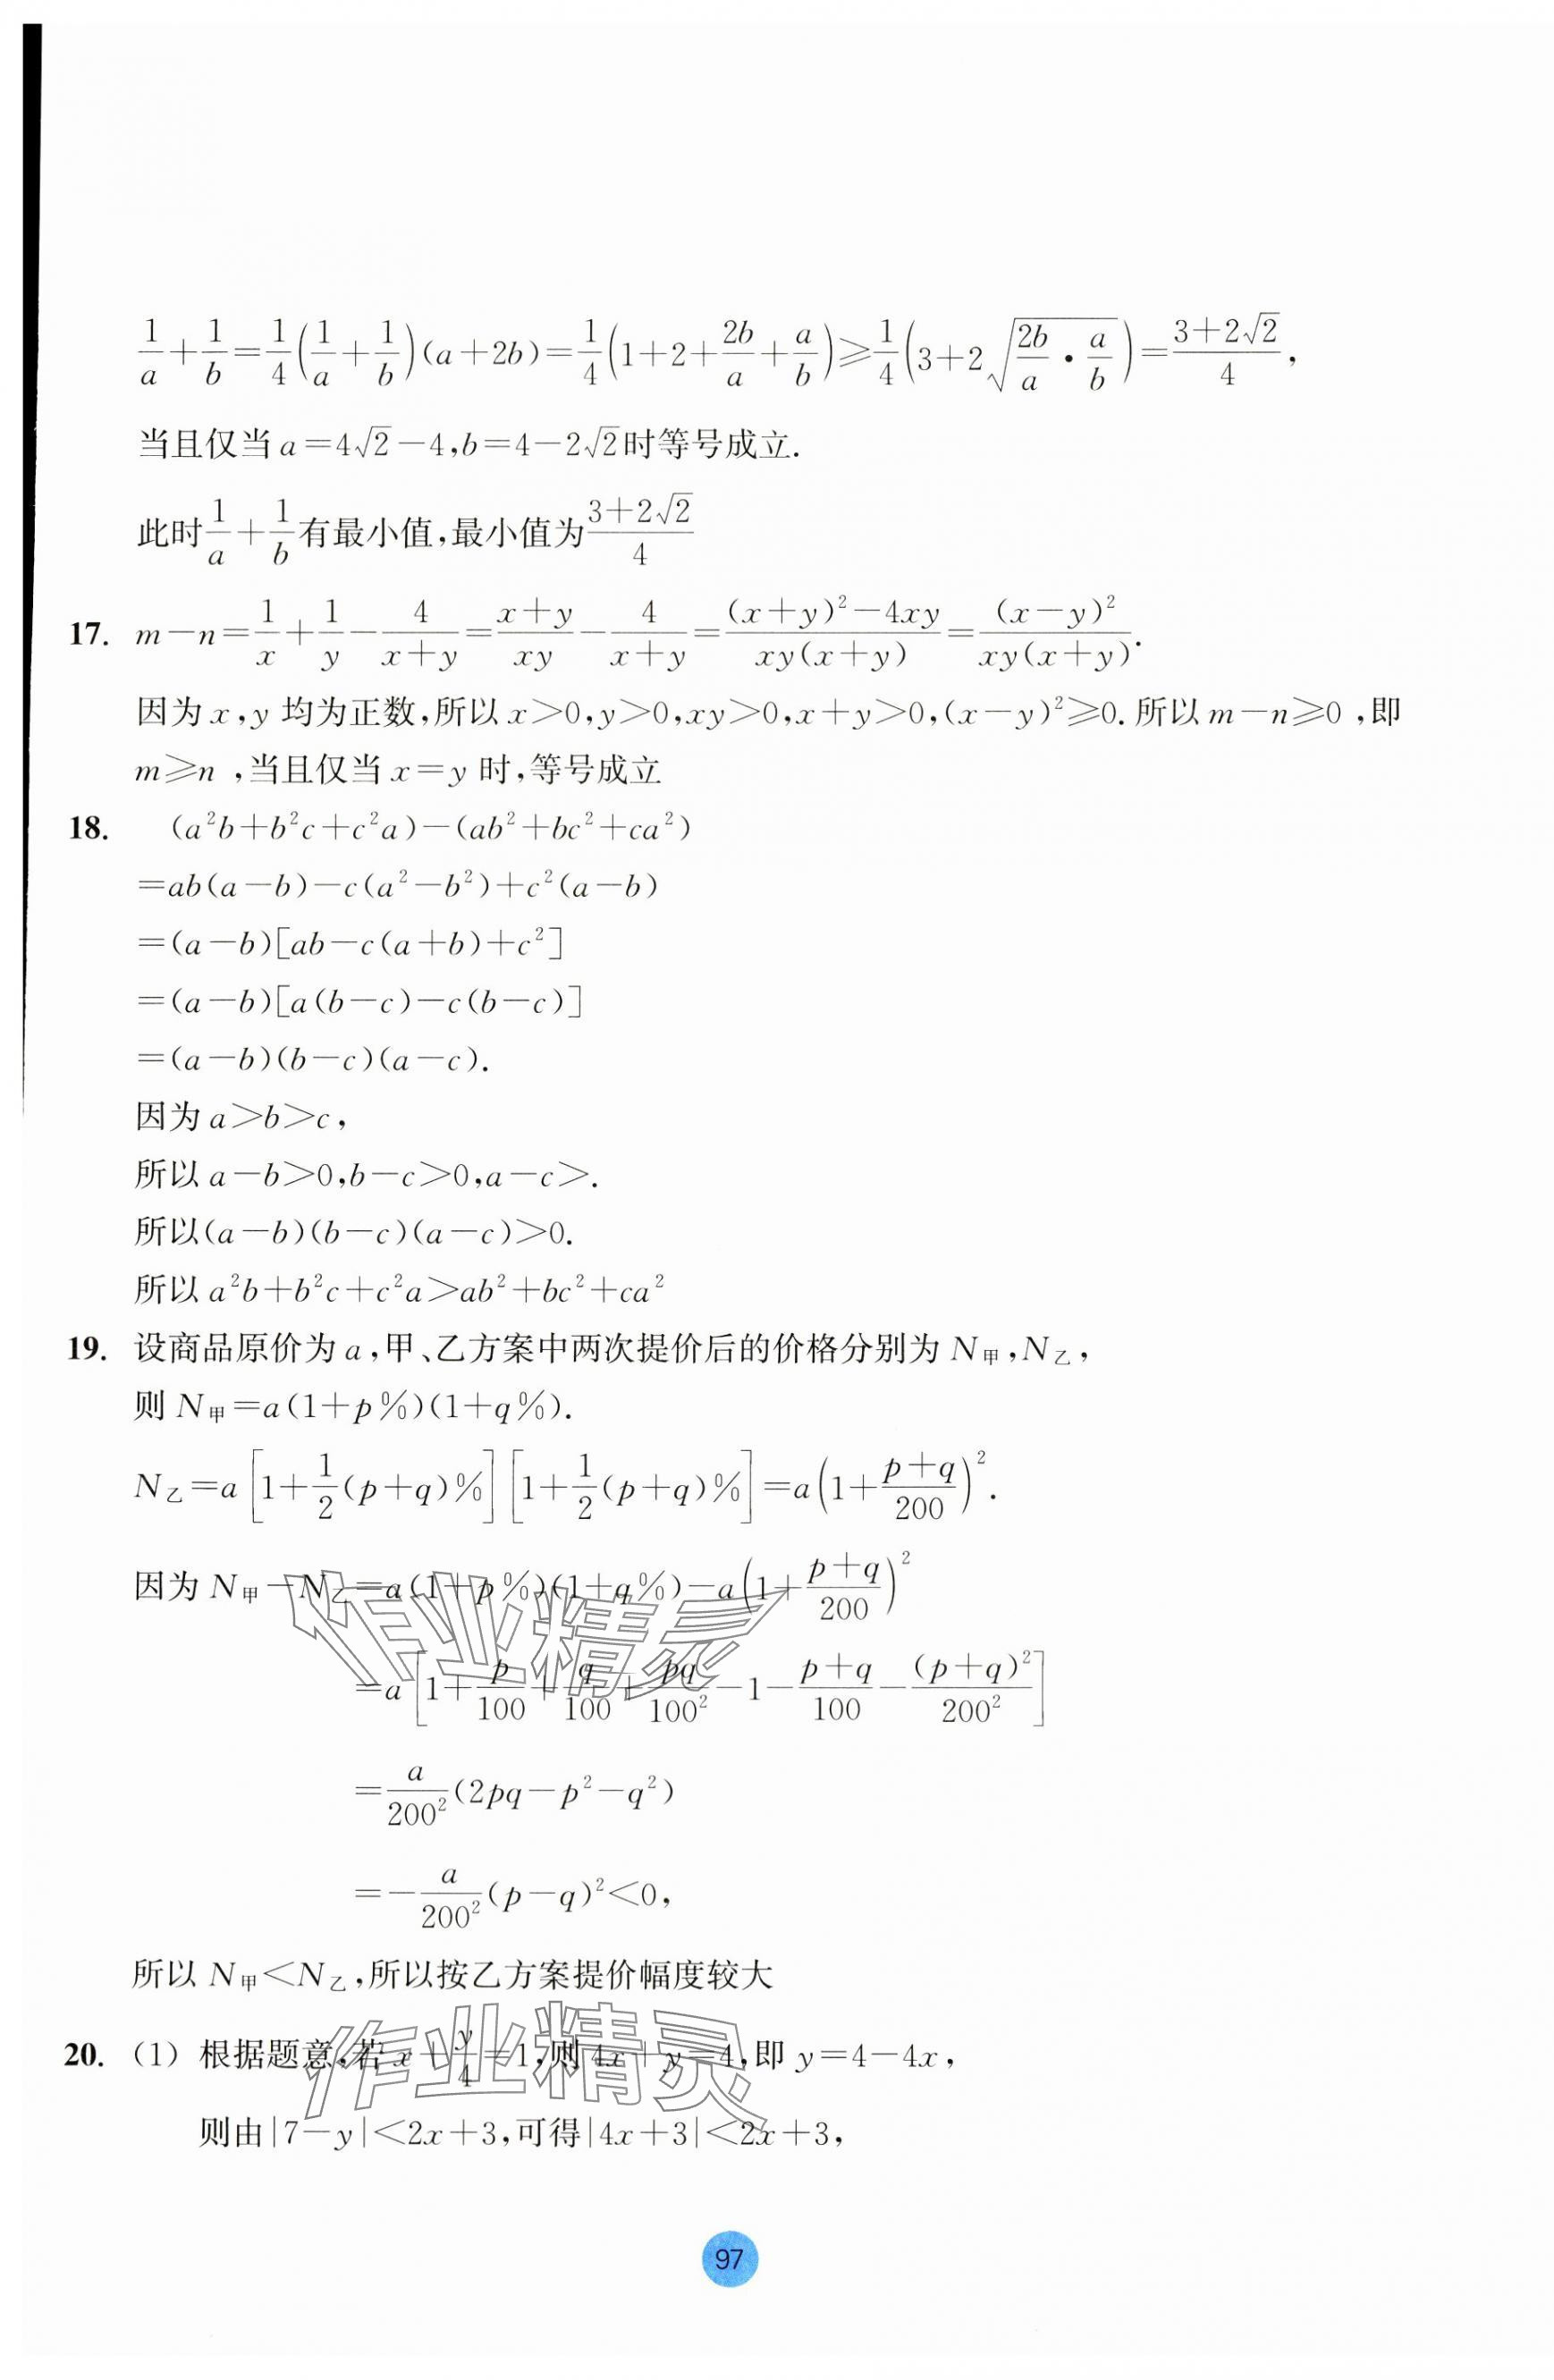 1/a+1/b=1/4(1/a+1/b)(a+2b)=1/4(1+2+2b/a+a/b)≥1/4(3+2√(2b/a·a/b))=(3+2√2)/4,
当且仅当a=4√2-4,b=4-2√2时等号成立.
此时1/a+1/b有最小值,最小值为(3+2√2)/4
17. m-n=1/x+1/y-4/(x+y)=(x+y)/xy-4/(x+y)=((x+y)²-4xy)/(xy(x+y))=(x-y)²/(xy(x+y)).
因为x,y均为正数,所以x>0,y>0,xy>0,x+y>0,(x-y)²≥0.所以m-n≥0,即
m≥n,当且仅当x=y时,等号成立
18. (a²b+b²c+c²a)-(ab²+bc²+ca²)
=ab(a-b)-c(a²-b²)+c²(a-b)
=(a-b)[ab-c(a+b)+c²]
=(a-b)[a(b-c)-c(b-c)]
=(a-b)(b-c)(a-c).
因为a>b>c,
所以a-b>0,b-c>0,a-c>.
所以(a-b)(b-c)(a-c)>0.
所以a²b+b²c+c²a>ab²+bc²+ca²
19. 设商品原价为a,甲、乙方案中两次提价后的价格分别为N甲,N乙,
则N甲=a(1+p%)(1+q%).
N乙=a[1+1/2(p+q)%][1+1/2(p+q)%]=a(1+(p+q)/200)².
因为N甲-N乙=a(1+p%)(1+q%)-a(1+(p+q)/200)²
=a[1+p/100+q/100+pq/100²-1-(p+q)/100-(p+q)²/200²]
=a/200²(2pq-p²-q²)
=-a/200²(p-q)²<0,
所以N甲<N乙,所以按乙方案提价幅度较大
20. (1) 根据题意,若x+y/4=1,则4x+y=4,即y=4-4x,
则由|7-y|<2x+3,可得|4x+3|<2x+3,
97
作业精灵
作业精灵